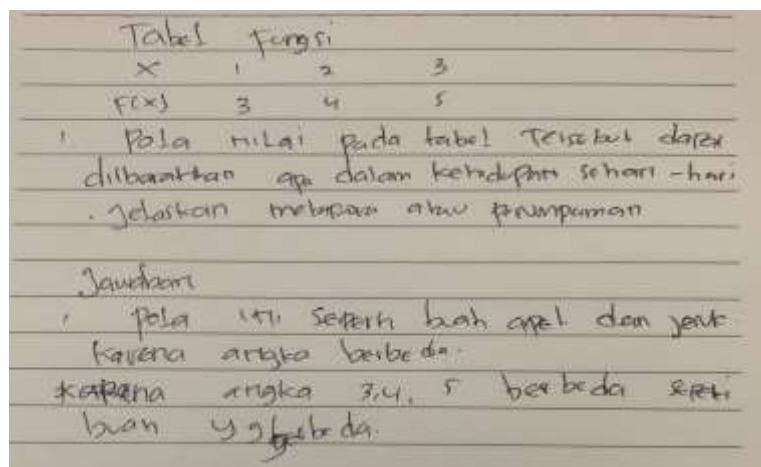 Tabel Fungsi
X 1 2 3
F(X) 3 4 5
1 Pola nilai pada tabel Tersebut dapat
diibaratkan apa dalam kehidupan sehari-hari
. Jelaskan metapora atau prumpaman
Jawaban
1 Pola ini seperti buah apel dan jeruk
Karena angka berbeda.
Karena angka 3,4, 5 berbeda seperti
buah yg berbeda.